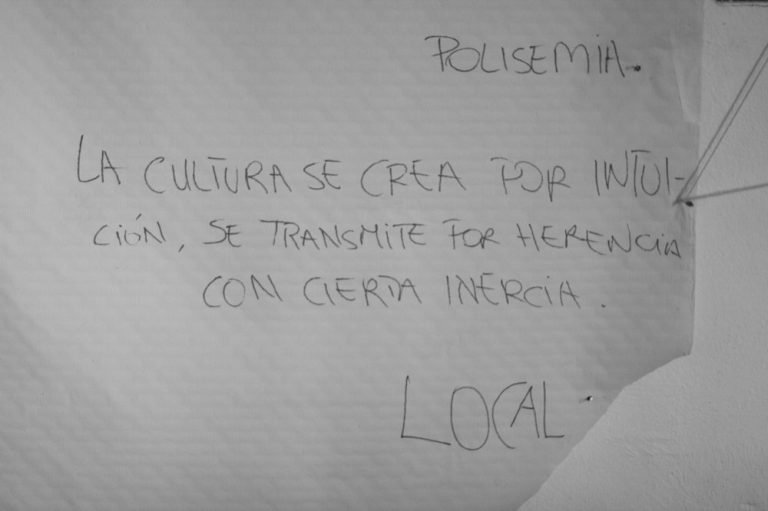 POLISEMIA.
LA CULTURA SE CREA POR INTUI-
CIÓN, SE TRANSMITE POR HERENCIA
CON CIERTA INERCIA.
LOCAL